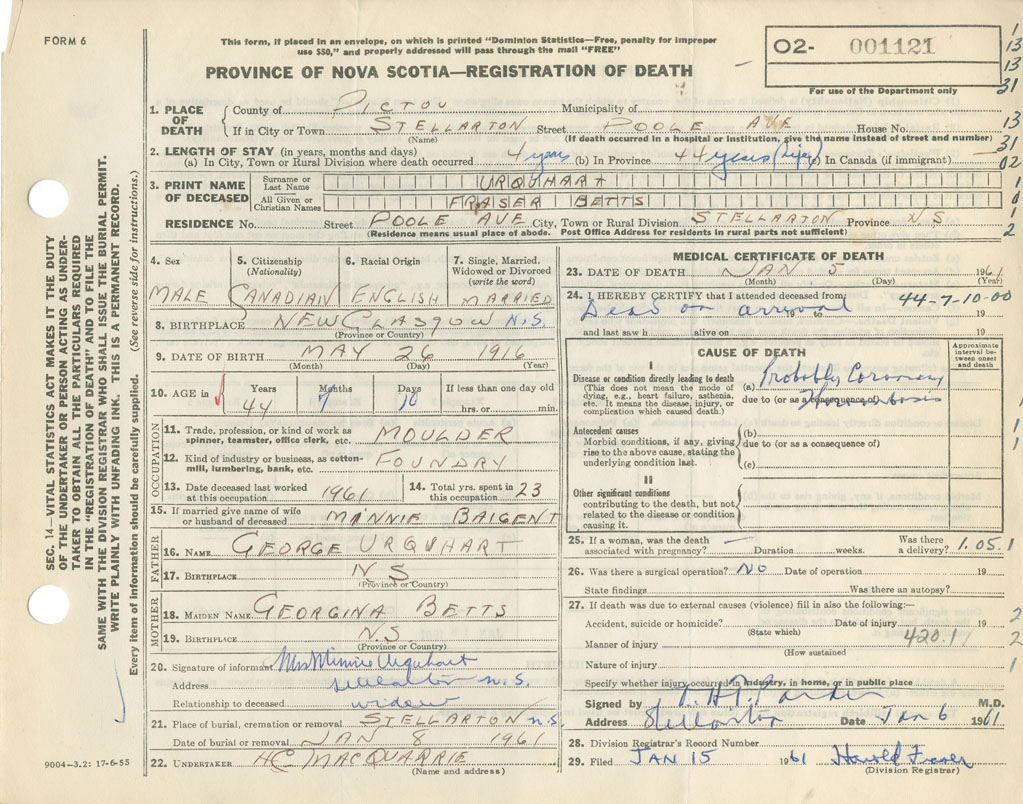 FORM 6
This form, if placed in an envelope, on which is printed "Dominion Statistics—Free, penalty for improper
use $50," and properly addressed will pass through the mail "FREE"
PROVINCE OF NOVA SCOTIA—REGISTRATION OF DEATH
O2- 001121
For use of the Department only
1
13
13
31
13
31
02
1
0
2
SEC. 14—VITAL STATISTICS ACT MAKES IT THE DUTY
OF THE UNDERTAKER OR PERSON ACTING AS UNDER-
TAKER TO OBTAIN ALL THE PARTICULARS REQUIRED
IN THE "REGISTRATION OF DEATH" AND TO FILE THE
SAME WITH THE DIVISION REGISTRAR WHO SHALL ISSUE THE BURIAL PERMIT.
WRITE PLAINLY WITH UNFADING INK. THIS IS A PERMANENT RECORD.
Every item of information should be carefully supplied. (See reverse side for instructions.)
1. PLACE OF DEATH
County of PICTOU Municipality of
If in City or Town STELLARTON Street POOLE AVE House No.
(Name) (If death occurred in a hospital or institution, give the name instead of street and number)
2. LENGTH OF STAY (in years, months and days)
(a) In City, Town or Rural Division where death occurred 4 years (b) In Province 44 years (life) (c) In Canada (if immigrant)
3. PRINT NAME OF DECEASED
Surname or Last Name URQUHART
All Given or Christian Names FRASER BETTS
RESIDENCE No. Street POOLE AVE City, Town or Rural Division STELLARTON Province N.S.
(Residence means usual place of abode. Post Office Address for residents in rural parts not sufficient)
4. Sex MALE
5. Citizenship (Nationality) CANADIAN
6. Racial Origin ENGLISH
7. Single, Married, Widowed or Divorced (write the word) MARRIED
8. BIRTHPLACE NEW GLASGOW N.S.
(Province or Country)
9. DATE OF BIRTH MAY 26 1916
(Month) (Day) (Year)
10. AGE in Years 44 Months 7 Days 10 If less than one day old
hrs. or min.
OCCUPATION
11. Trade, profession, or kind of work as spinner, teamster, office clerk, etc. MOULDER
12. Kind of industry or business, as cotton-mill, lumbering, bank, etc. FOUNDRY
13. Date deceased last worked at this occupation 1961
14. Total yrs. spent in this occupation 23
15. If married give name of wife or husband of deceased MINNIE BAIGENT
FATHER
16. NAME GEORGE URQUHART
17. BIRTHPLACE N S
(Province or Country)
MOTHER
18. MAIDEN NAME GEORGINA BETTS
19. BIRTHPLACE N.S.
(Province or Country)
20. Signature of informant Mrs Minnie Urquhart
Address Stellarton N.S.
Relationship to deceased widow
21. Place of burial, cremation or removal STELLARTON N.S.
Date of burial or removal JAN 8 1961
22. UNDERTAKER HC MACQUARRIE
(Name and address)
9004—3.2: 17-6-55
MEDICAL CERTIFICATE OF DEATH
23. DATE OF DEATH JAN 5 1961
(Month) (Day) (Year)
24. I HEREBY CERTIFY that I attended deceased from 44-7-10-00
Dead on arrival 19 to 19
and last saw h alive on 19
CAUSE OF DEATH
Approximate interval between onset and death
I
Disease or condition directly leading to death
(This does not mean the mode of dying, e.g., heart failure, asthenia, etc. It means the disease, injury, or complication which caused death.)
(a) Probably Coronary
due to (or as a consequence of) Thrombosis
Antecedent causes
Morbid conditions, if any, giving rise to the above cause, stating the underlying condition last.
(b)
due to (or as a consequence of)
(c)
1
1
II
Other significant conditions
contributing to the death, but not related to the disease or condition causing it.
25. If a woman, was the death associated with pregnancy? — Duration weeks. Was there a delivery? 1.05.1
26. Was there a surgical operation? NO Date of operation 19
State findings Was there an autopsy?
27. If death was due to external causes (violence) fill in also the following:—
Accident, suicide or homicide? Date of injury 19 2
(State which)
Manner of injury 420.1 2
(How sustained
Nature of injury 1
Specify whether injury occurred in industry, in home, or in public place
Signed by M.D.
Address Stellarton Date Jan 6 1961
28. Division Registrar's Record Number
29. Filed JAN 15 1961 Harold Fraser
(Division Registrar)